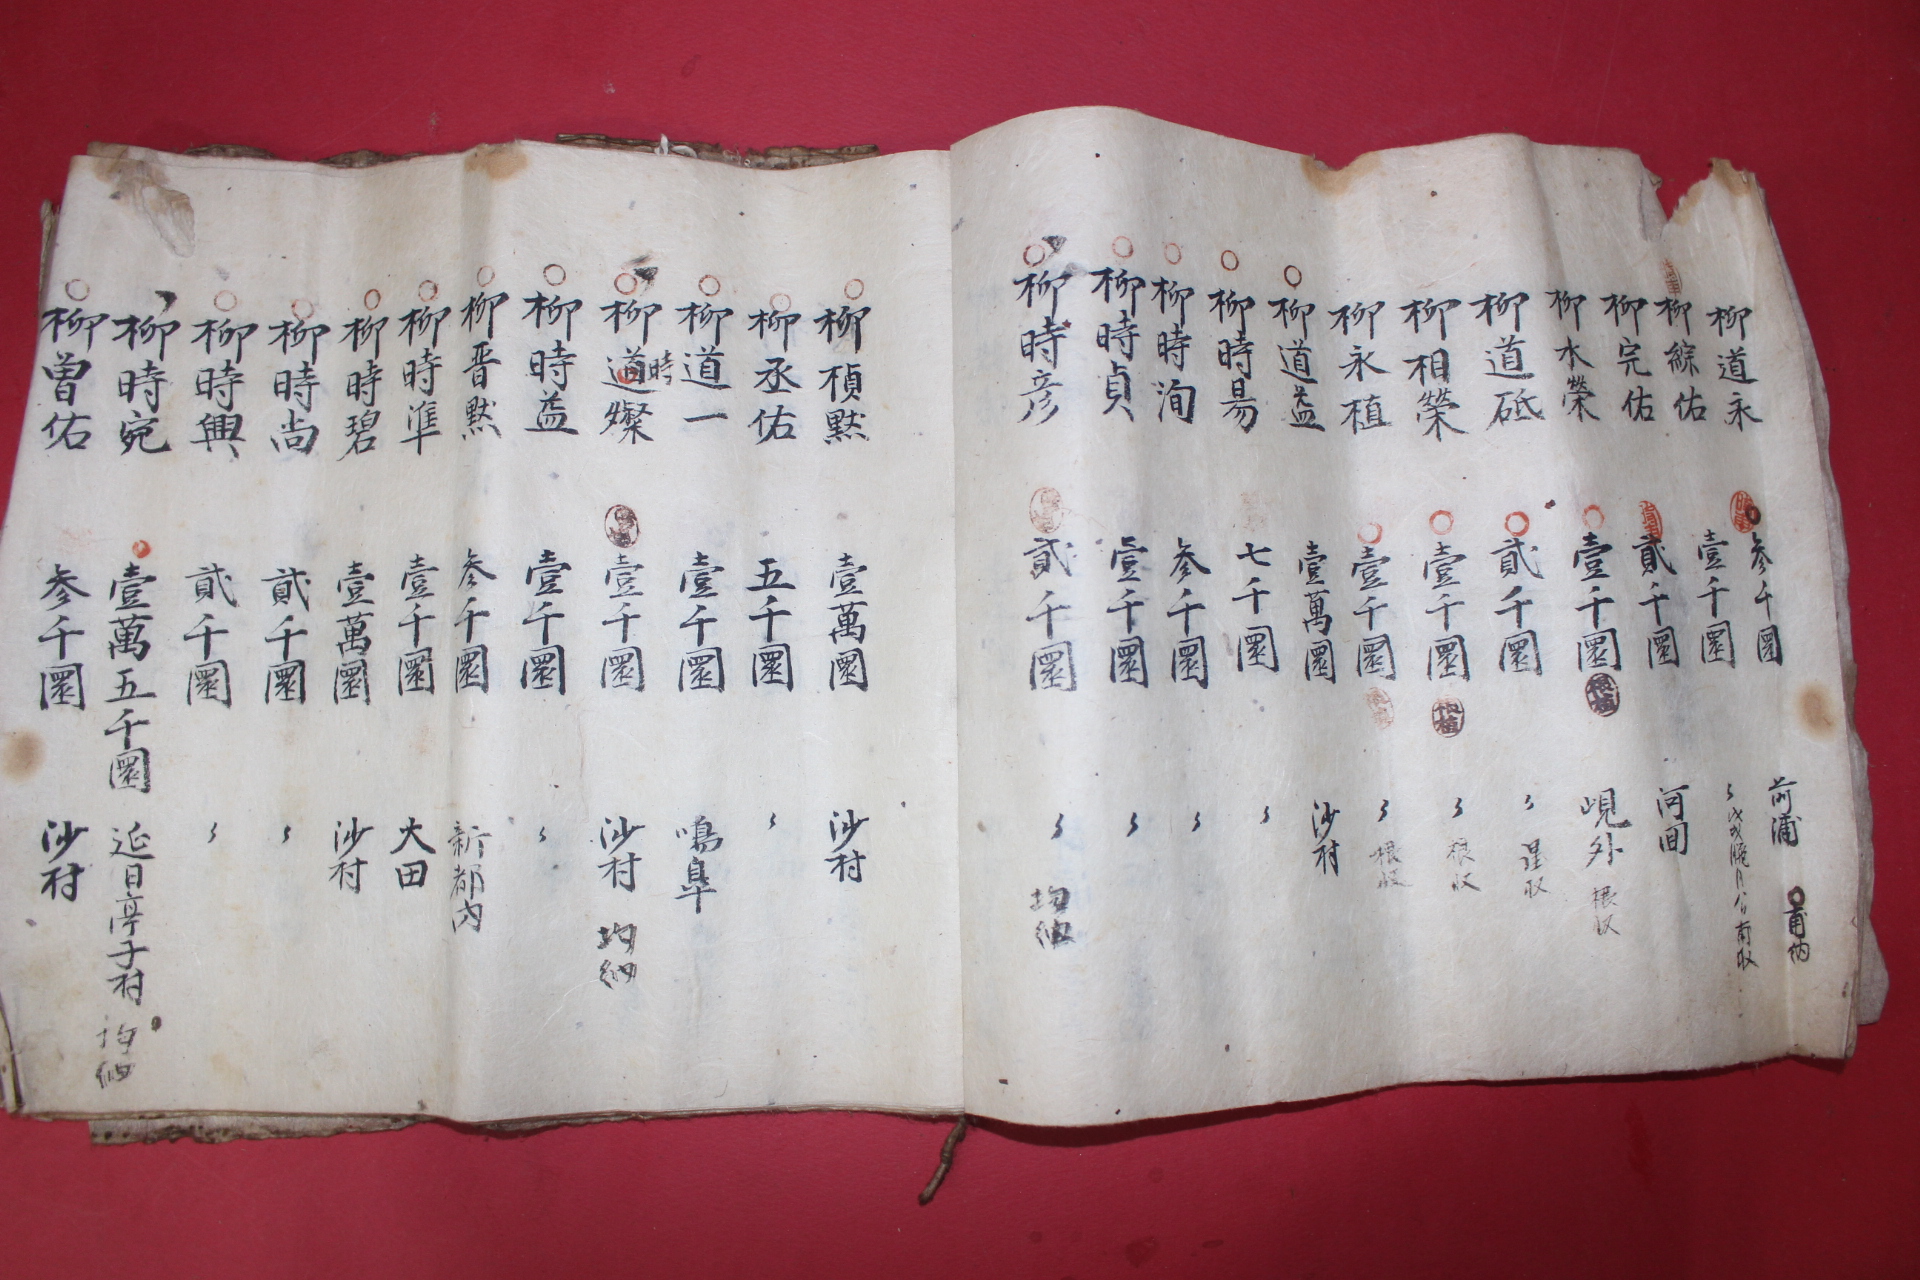 柳道永 参千圜 前浦 甫納
柳綜佑 壹千圜 〻 戊戌臘月 日 甫収
柳完佑 貳千圜 河回
柳本榮 壹千圜 峴外 根収
柳道砥 貳千圜 〻 星収
柳相榮 壹千圜 〻 根収
柳永植 壹千圜 〻 根収
柳道益 壹萬圜 沙村
柳時昜 七千圜 〻
柳時洵 参千圜 〻
柳時貞 壹千圜 〻
柳時彦 貳千圜 〻 均納
柳楨黙 壹萬圜 沙村
柳丞佑 五千圜 〻
柳道一 壹千圜 鳴皐
柳道時燦 壹千圜 沙村 均納
柳時益 壹千圜 〻
柳晋黙 参千圜 新都內
柳時準 壹千圜 大田
柳時碧 壹萬圜 沙村
柳時尚 貳千圜 〻
柳時興 貳千圜 〻
柳時宛 壹萬五千圜 延日亭子村 均納
柳曽佑 参千圜 沙村